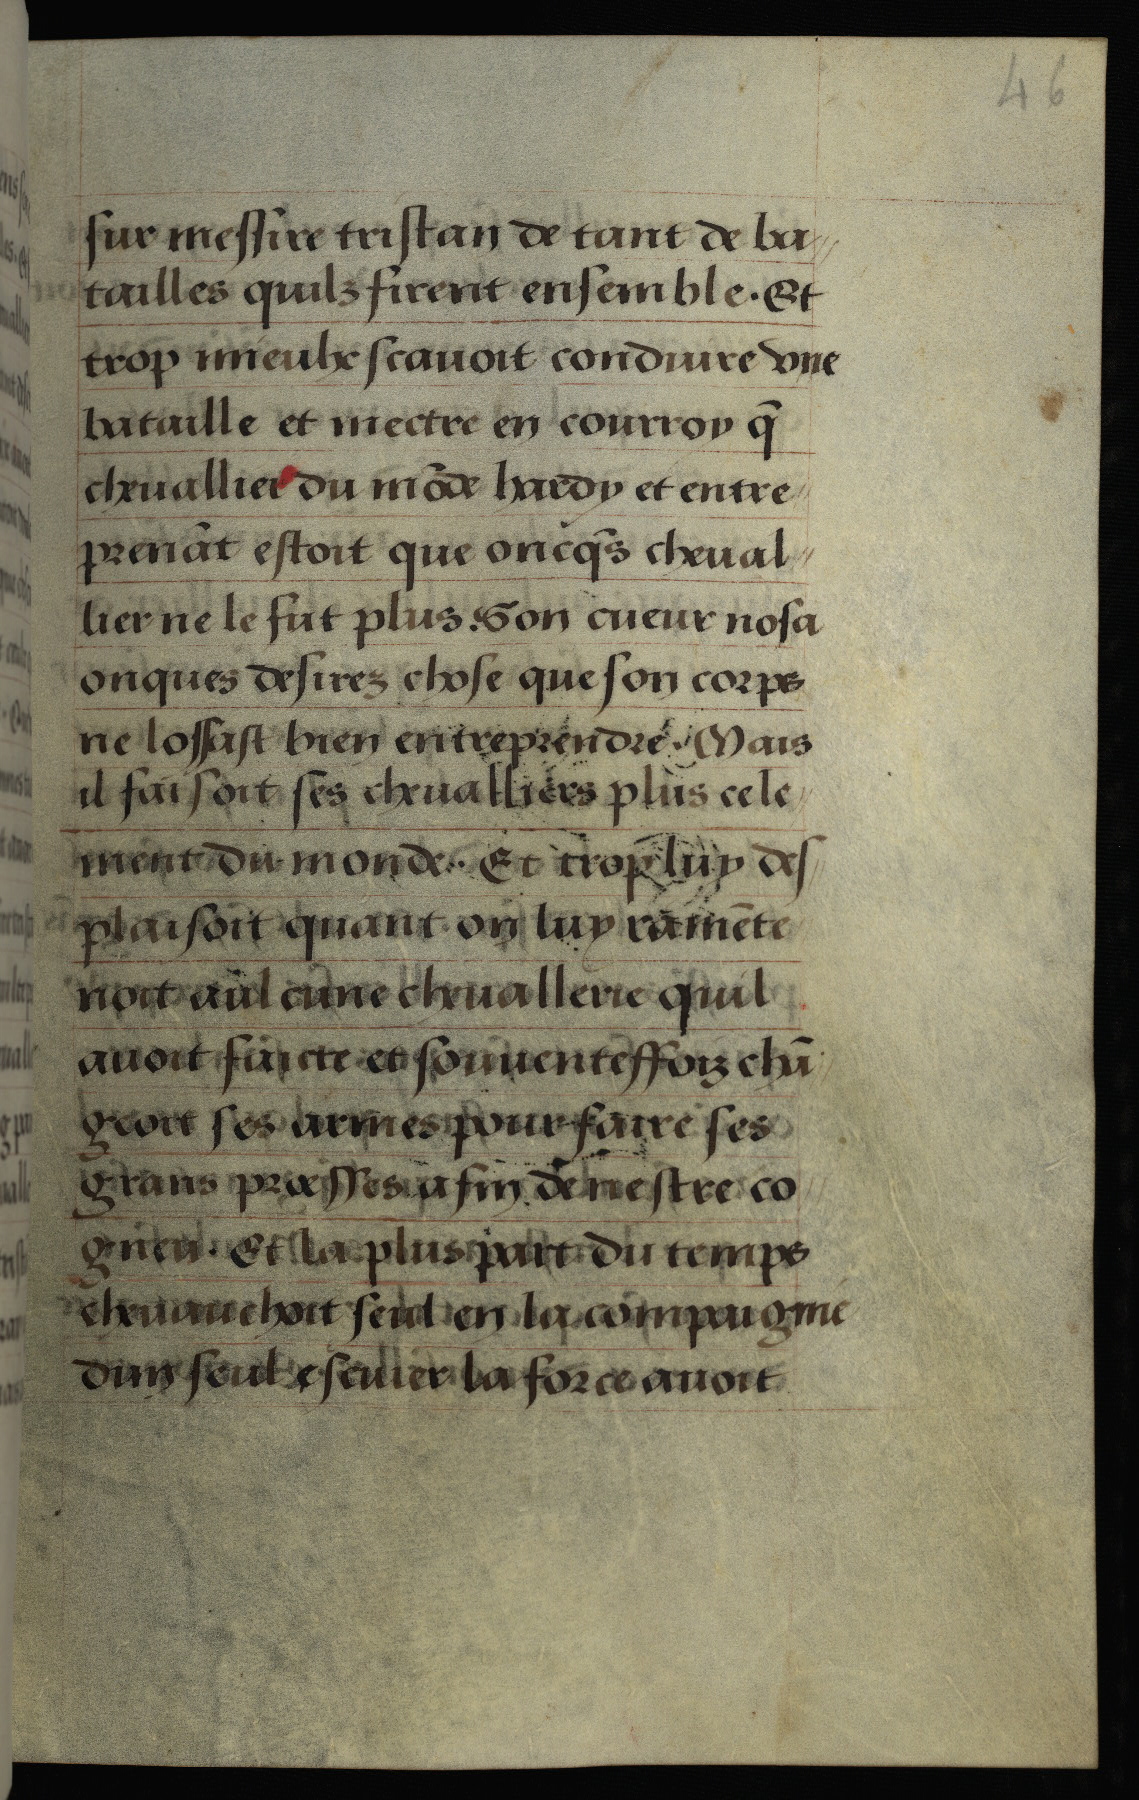 46
sur messire tristan de tant de ba
tailles quilz firent ensemble. Et
trop mieulx scauoit conduire vne
bataille et mectre en courroy q̄
cheuallier du mōde hardy et entre
prenāt estoit que oncq̄s cheual
lier ne le fut plus. Son cueur nosa
onques desirez chose que son corps
ne lossast bien entreprendre. Mais
il faisoit ses cheualliers plus cele
ment du monde. Et trop luy des
plaisoit quant on luy ramēte
noit aulcune cheuallerie quil
auoit faicte et souuenteffoiz chā
geoit ses armes pour faire ses
grans proesses afin de nestre co
gneu. Et la plus part du temps
cheuauchoit seul en la compaugnie
dun seul escuier la force auoit